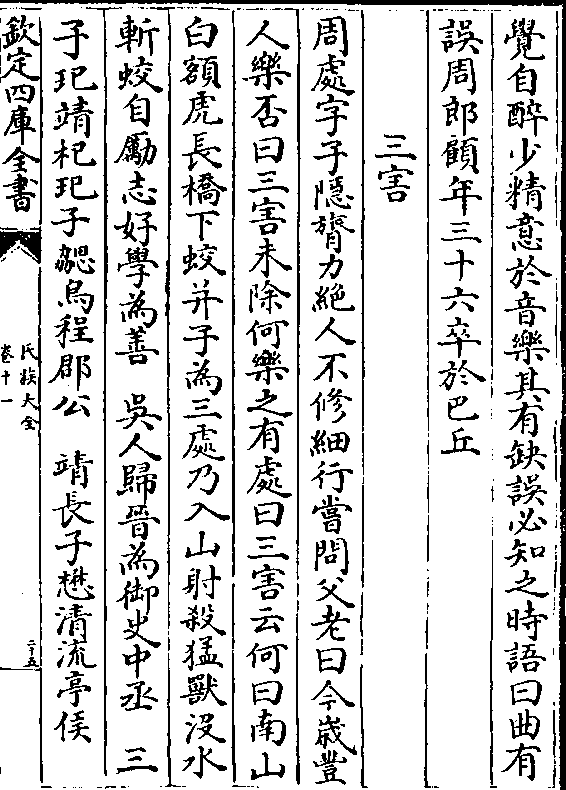 覺自醉少精意於音樂其有缺誤必知之時語曰曲有
誤周郎顧年三十六卒於巴丘
三害
周處字子隱膂力絶人不修細行嘗問父老曰今嵗豐
人樂否曰三害未除何樂之有處曰三害云何曰南山
白額虎長橋下蛟并子為三處乃入山射殺猛獸没水
斬蛟自勵志好學為善　吳人歸晉為御史中丞　三
子玘靖札玘子勰烏程郡公　靖長子懋清流亭侯
欽定四庫全書
氏族大全
卷十一
二十五